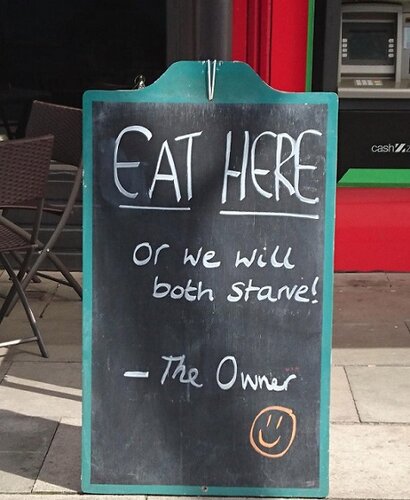 EAT HERE
Or we will
both starve!
- The Owner
cash